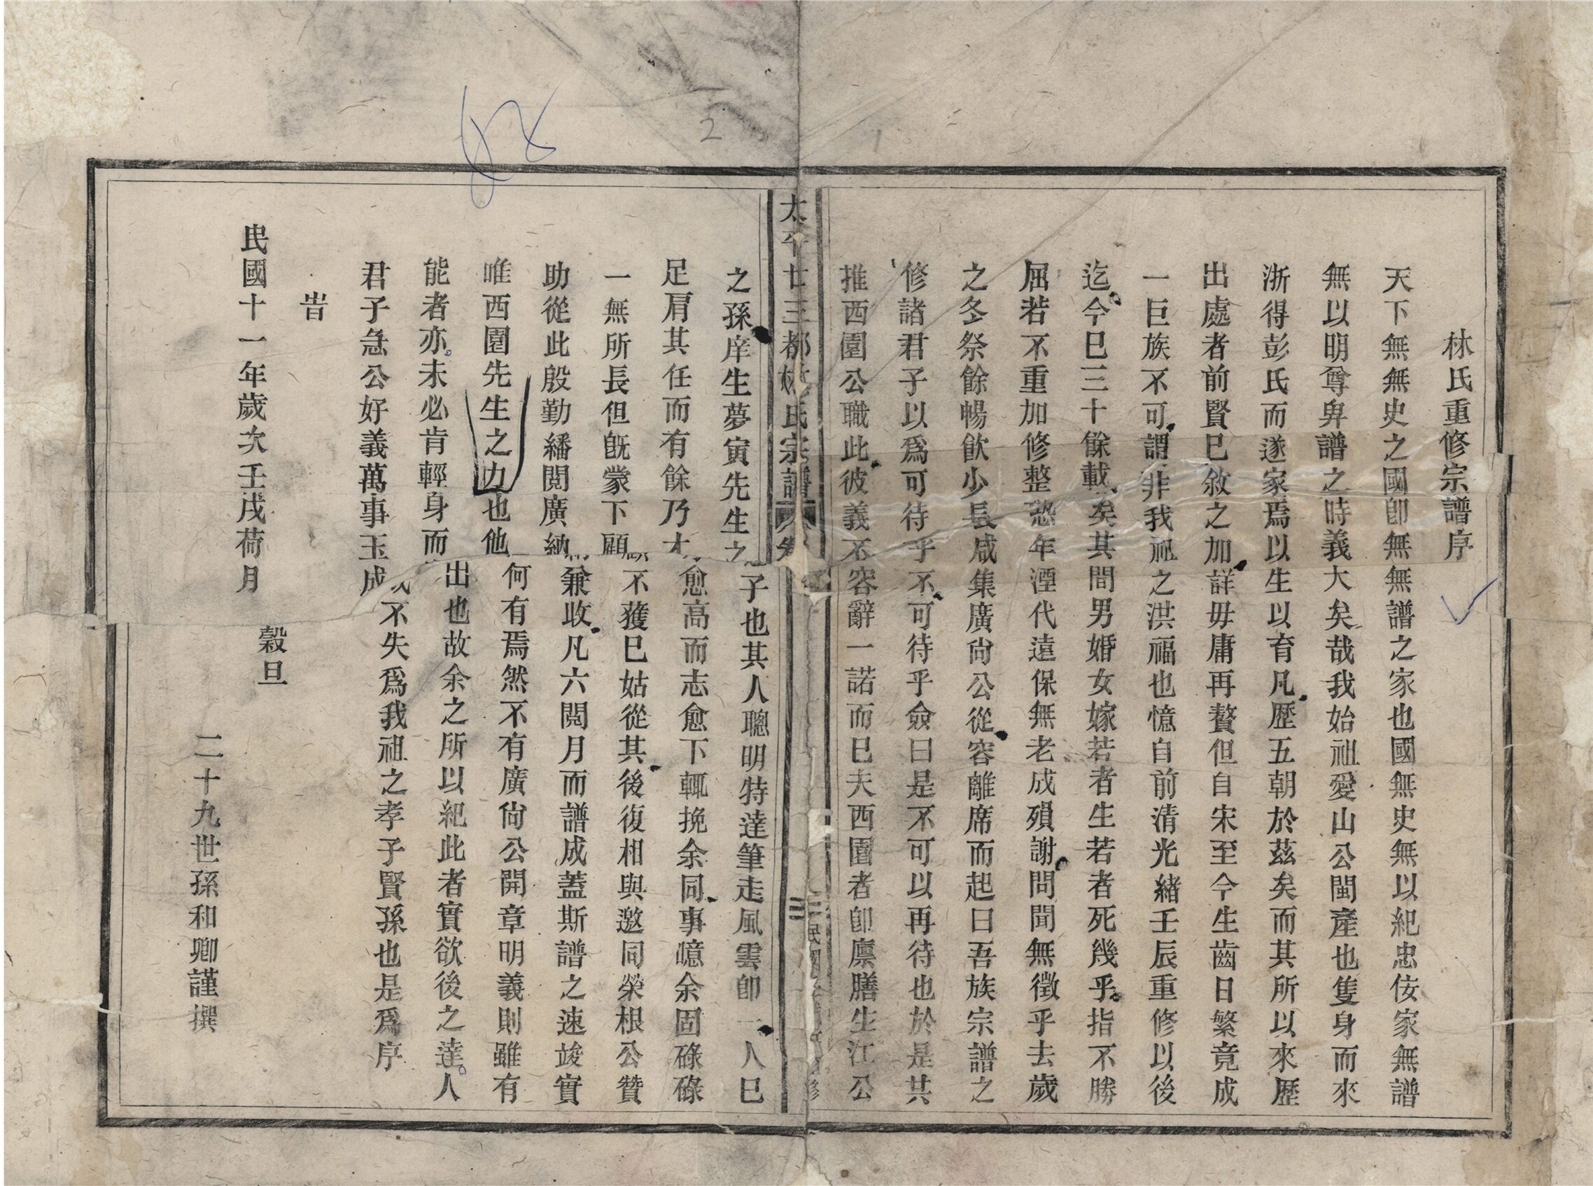 林氏重修宗譜序
天下無無史之國卽無無譜之家也國無史無以紀忠佞家無譜
無以明尊卑譜之時義大矣哉我始祖愛山公閩產也隻身而來
浙得彭氏而遂家焉以生以育凡歷五朝於茲矣而其所以來歷
出處者前賢已敘之加詳毋庸再贅但自宋至今生齒日繁竟成
一巨族不可謂非我祖之洪福也憶自前清光緒壬辰重修以後
迄今已三十餘載矣其間男婚女嫁若者生若者死幾乎指不勝
屈若不重加修整恐年湮代遠保無老成殞謝問聞無徵乎去歲
之冬祭餘暢飲少長咸集廣尙公從容離席而起曰吾族宗譜之
修諸君子以爲可待乎不可待乎僉曰是不可以再待也於是共
推西園公職此彼義不容辭一諾而已夫西園者卽廩膳生江公
太平廿三都林氏宗譜 卷
三 民國 修
之孫庠生夢寅先生之子也其人聰明特達筆走風雲卽一人已
足肩其任而有餘乃才愈高而志愈下輒挽余同事噫余固碌碌
一無所長但旣蒙下顧不獲已姑從其後復相與邀同榮根公贊
助從此殷勤繙閱廣納兼收凡六閱月而譜成蓋斯譜之速竣實
唯西園先生之力也他何有焉然不有廣尙公開章明義則雖有
能者亦未必肯輕身而出也故余之所以紀此者實欲後之達人
君子急公好義萬事玉成不失爲我祖之孝子賢孫也是爲序
旹
民國十一年歲次壬戌荷月 穀旦
二十九世孫和卿謹撰
68
2